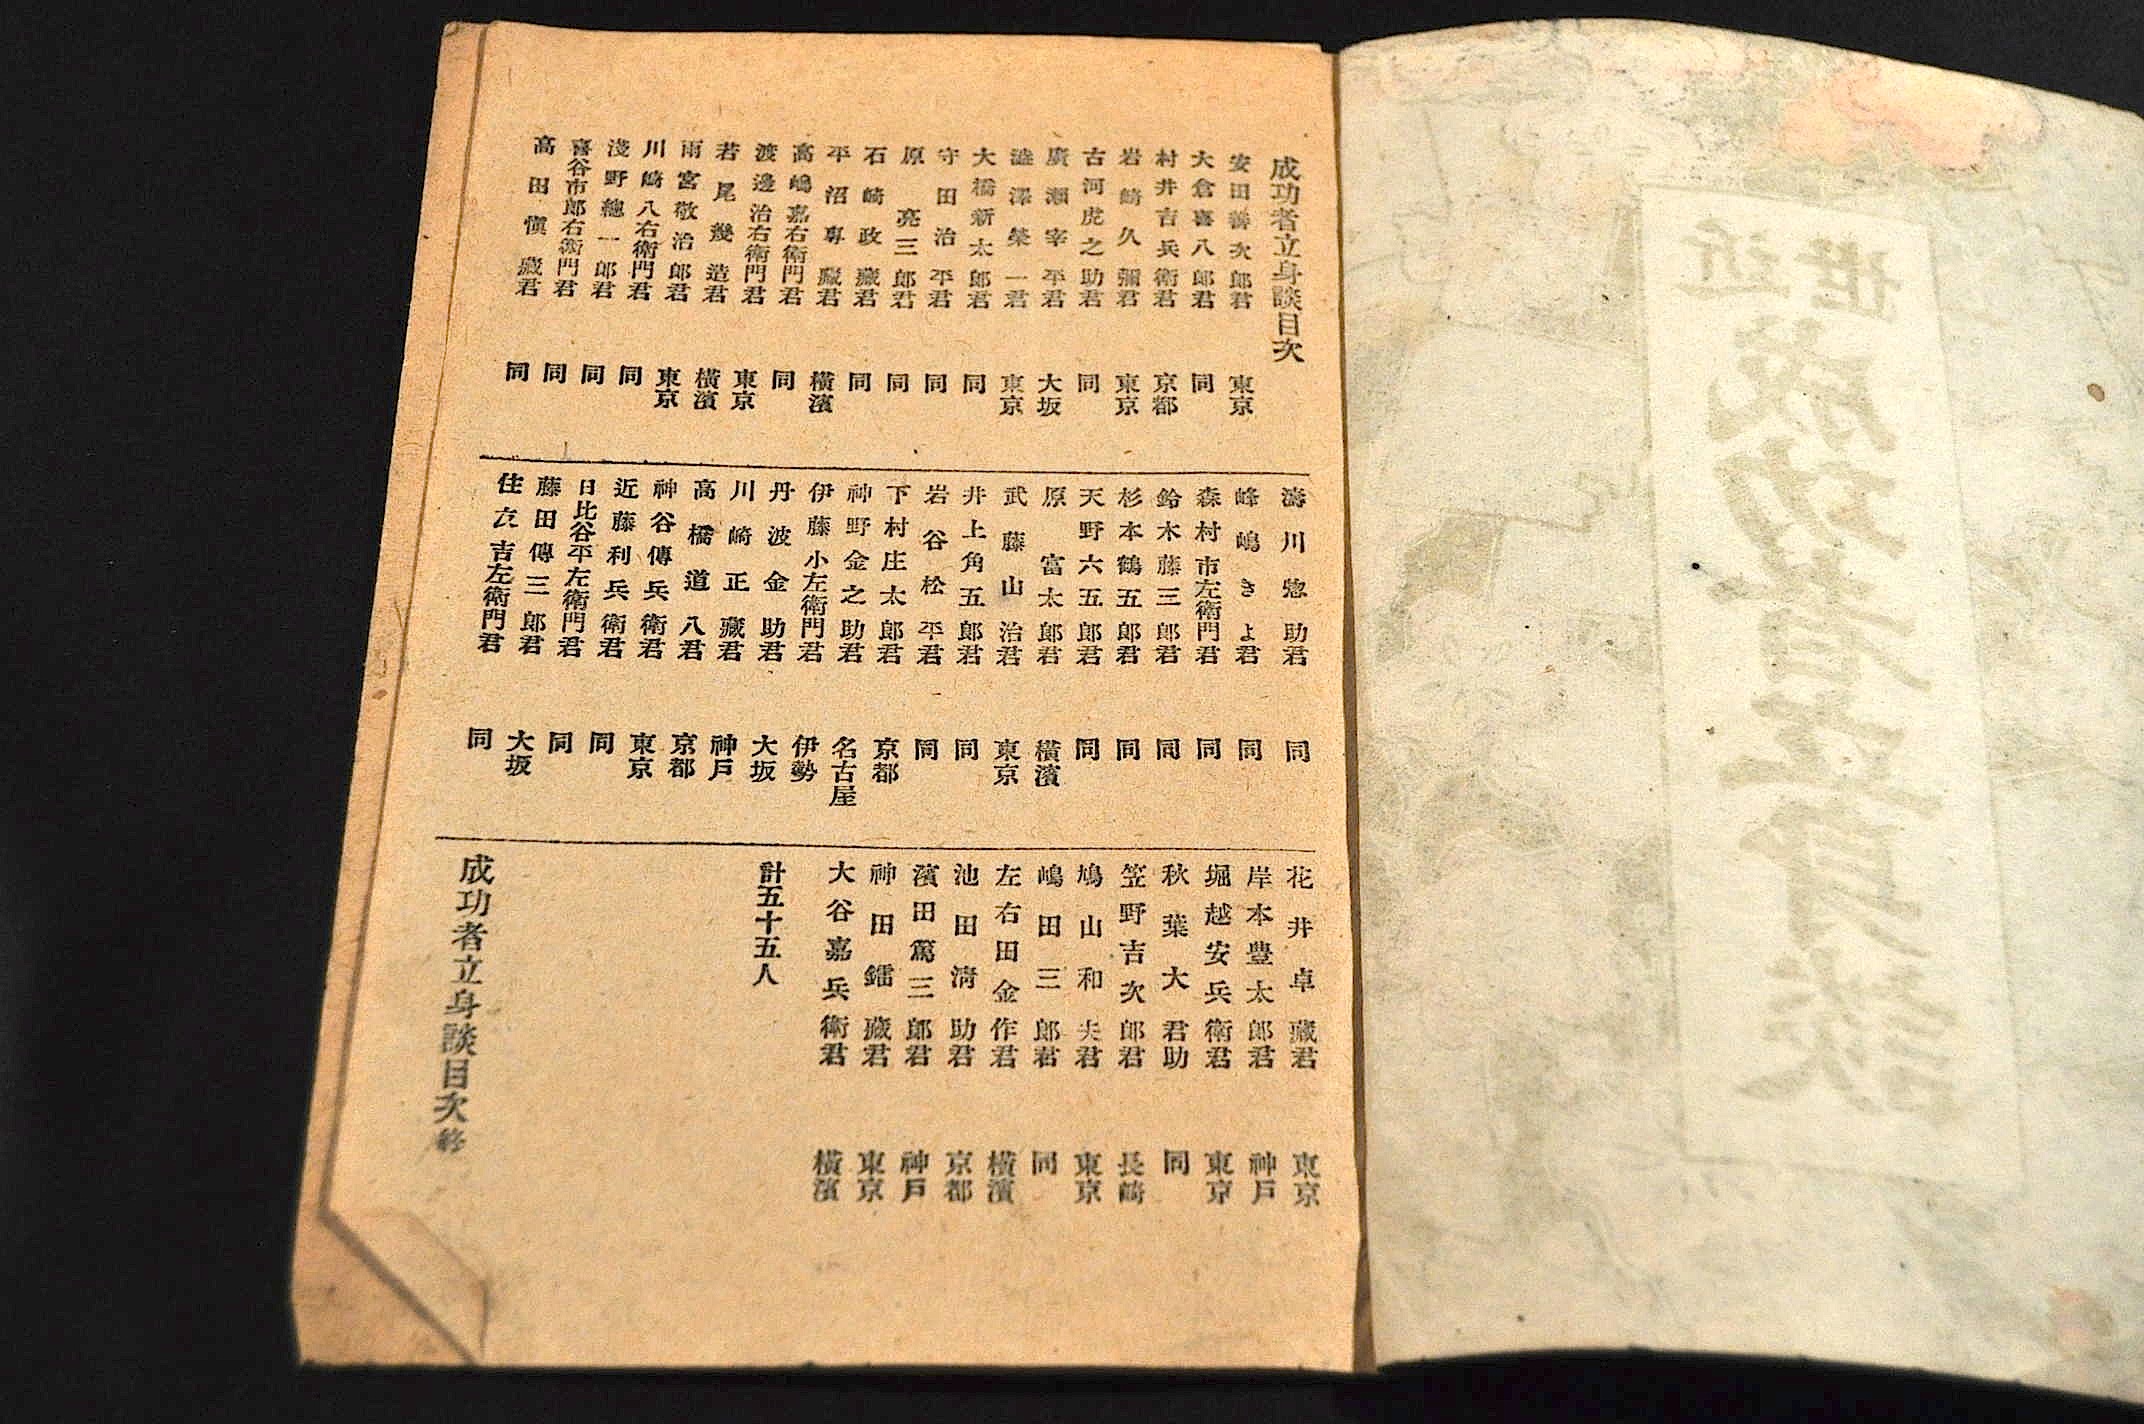 成功者立身談目次
安田善次郎君 東京
大倉喜八郎君 同
村井吉兵衛君 京都
岩崎久彌君 東京
古河虎之助君 同
廣瀬宰平君 大坂
澁澤榮一君 東京
大橋新太郎君 同
守田治平君 同
原亮三郎君 同
石崎政藏君 同
平沼專藏君 横濱
高嶋嘉右衛門君 同
渡邊治右衛門君 東京
若尾幾造君 横濱
雨宮敬治郎君 東京
川崎八右衛門君 同
淺野總一郎君 同
喜谷市郎右衛門君 同
高田愼藏君 同
濤川惣助君 同
峰嶋きよ君 同
森村市左衛門君 同
鈴木藤三郎君 同
杉本鶴五郎君 同
天野六五郎君 同
原富太郎君 横濱
武藤山治君 東京
井上角五郎君 同
岩谷松平君 同
下村庄太郎君 京都
神野金之助君 名古屋
伊藤小左衛門君 伊勢
丹波金助君 大坂
川崎正藏君 神戸
高橋道八君 京都
神谷傳兵衛君 東京
近藤利兵衛君 同
日比谷平左衛門君 同
藤田傳三郎君 大坂
住友吉左衛門君 同
花井卓藏君 東京
岸本豊太郎君 神戸
堀越安兵衛君 東京
秋葉大君助 同
笠野吉次郎君 長崎
鳩山和夫君 東京
嶋田三郎君 同
左右田金作君 横濱
池田淸助君 京都
濱田篤三郎君 神戸
神田鐳藏君 東京
大谷嘉兵衛君 横濱
計五十五人
成功者立身談目次終
近世
成功者立身談